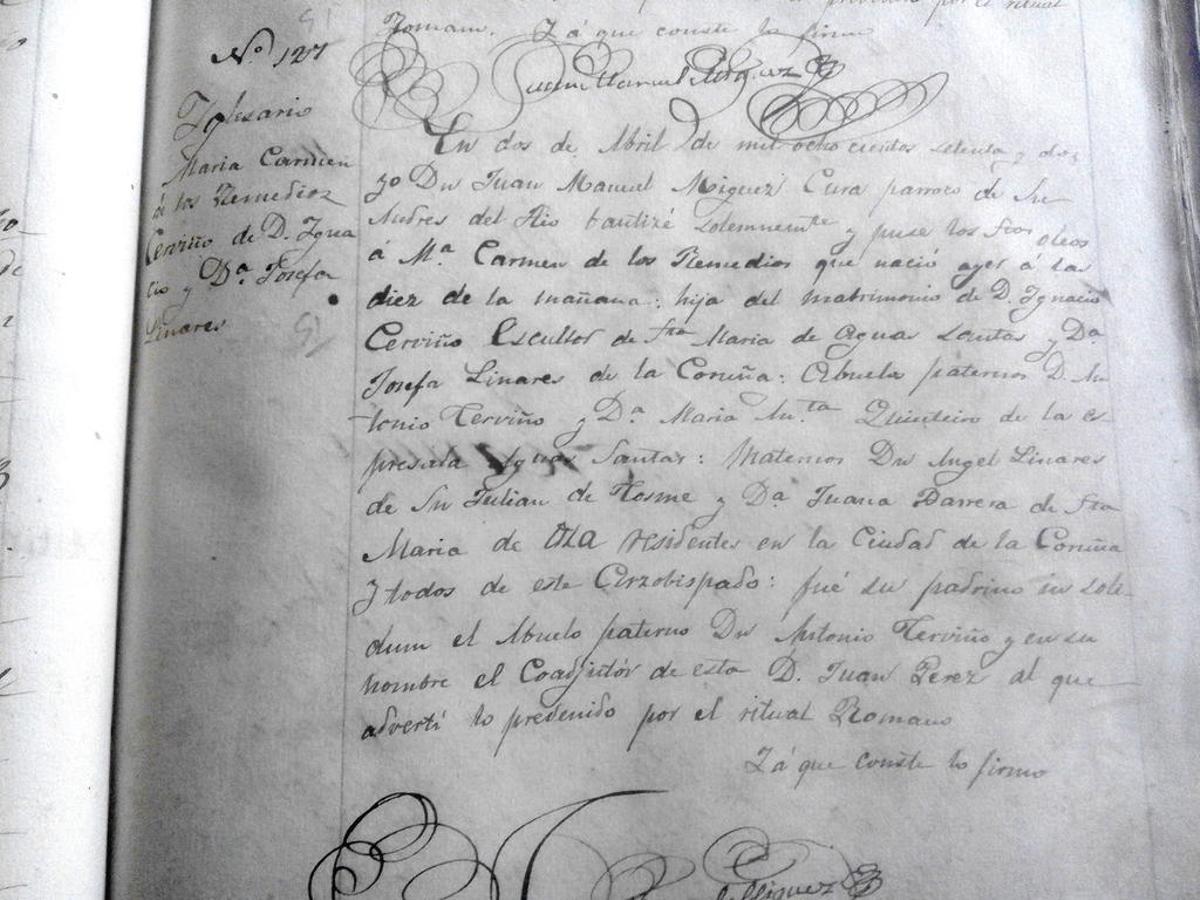 prevenido por el ritual
Romano. Y á que conste lo firmo
Juan Manuel Miguez
Nº 127
Yglesario
Maria Carmen
de los Remedios
Cerviño de D. Igna
cio y Dª Josefa
Linares
En dos de Abril de mil ochocientos setenta y dos
yo Dn Juan Manuel Miguez Cura parroco de Sn
Andres del Rio bautizé solemnemte y puse los stos oleos
á Mª Carmen de los Remedios que nació ayer á las
diez de la mañana: hija del matrimonio de D. Ignacio
Cerviño Escultor de Sta Maria de Aguas Santas y Dª
Josefa Linares de la Coruña: Abuelos paternos D. An
tonio Cerviño y Dª Maria Anta Quinteiro de la es
presada Aguas Santas: Maternos Dn Angel Linares
de Sn Julian de Cosme y Dª Juana Barrera de Sta
Maria de Oza residentes en la Ciudad de la Coruña
Y todos de este Arzobispado: fué su padrino in soli
dum el Abuelo paterno Dn Antonio Cerviño y en su
nombre el Coadjutór de esta D. Juan Perez al que
advertí lo prevenido por el ritual Romano
Y á que conste lo firmo
Miguez